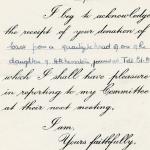 I beg to acknowledge
the receipt of your donation of
head of one of the
daughter of
which I shall have pleasure
in reporting to my Committee
at their next meeting.
I am,
Yours faithfully,